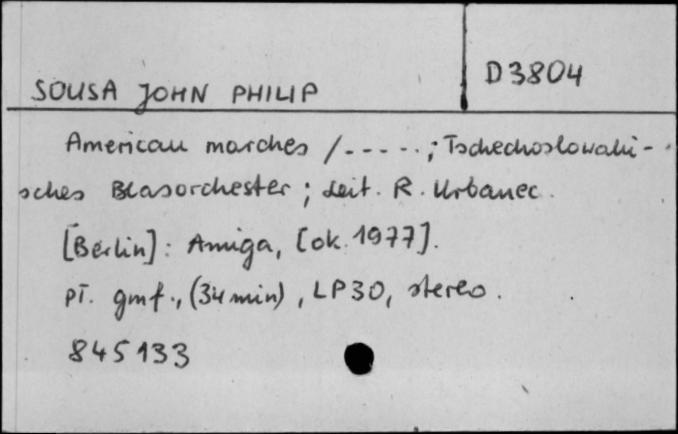 D3804
SOUSA JOHN PHILIP
American marches / - - - - -; Tschechoslowaki-
sches Blasorchester; Leit. R. Urbanec.
[Berlin]: Amiga, [ok. 1977].
pł. gmf., (34 min), LP30, stereo.
845133